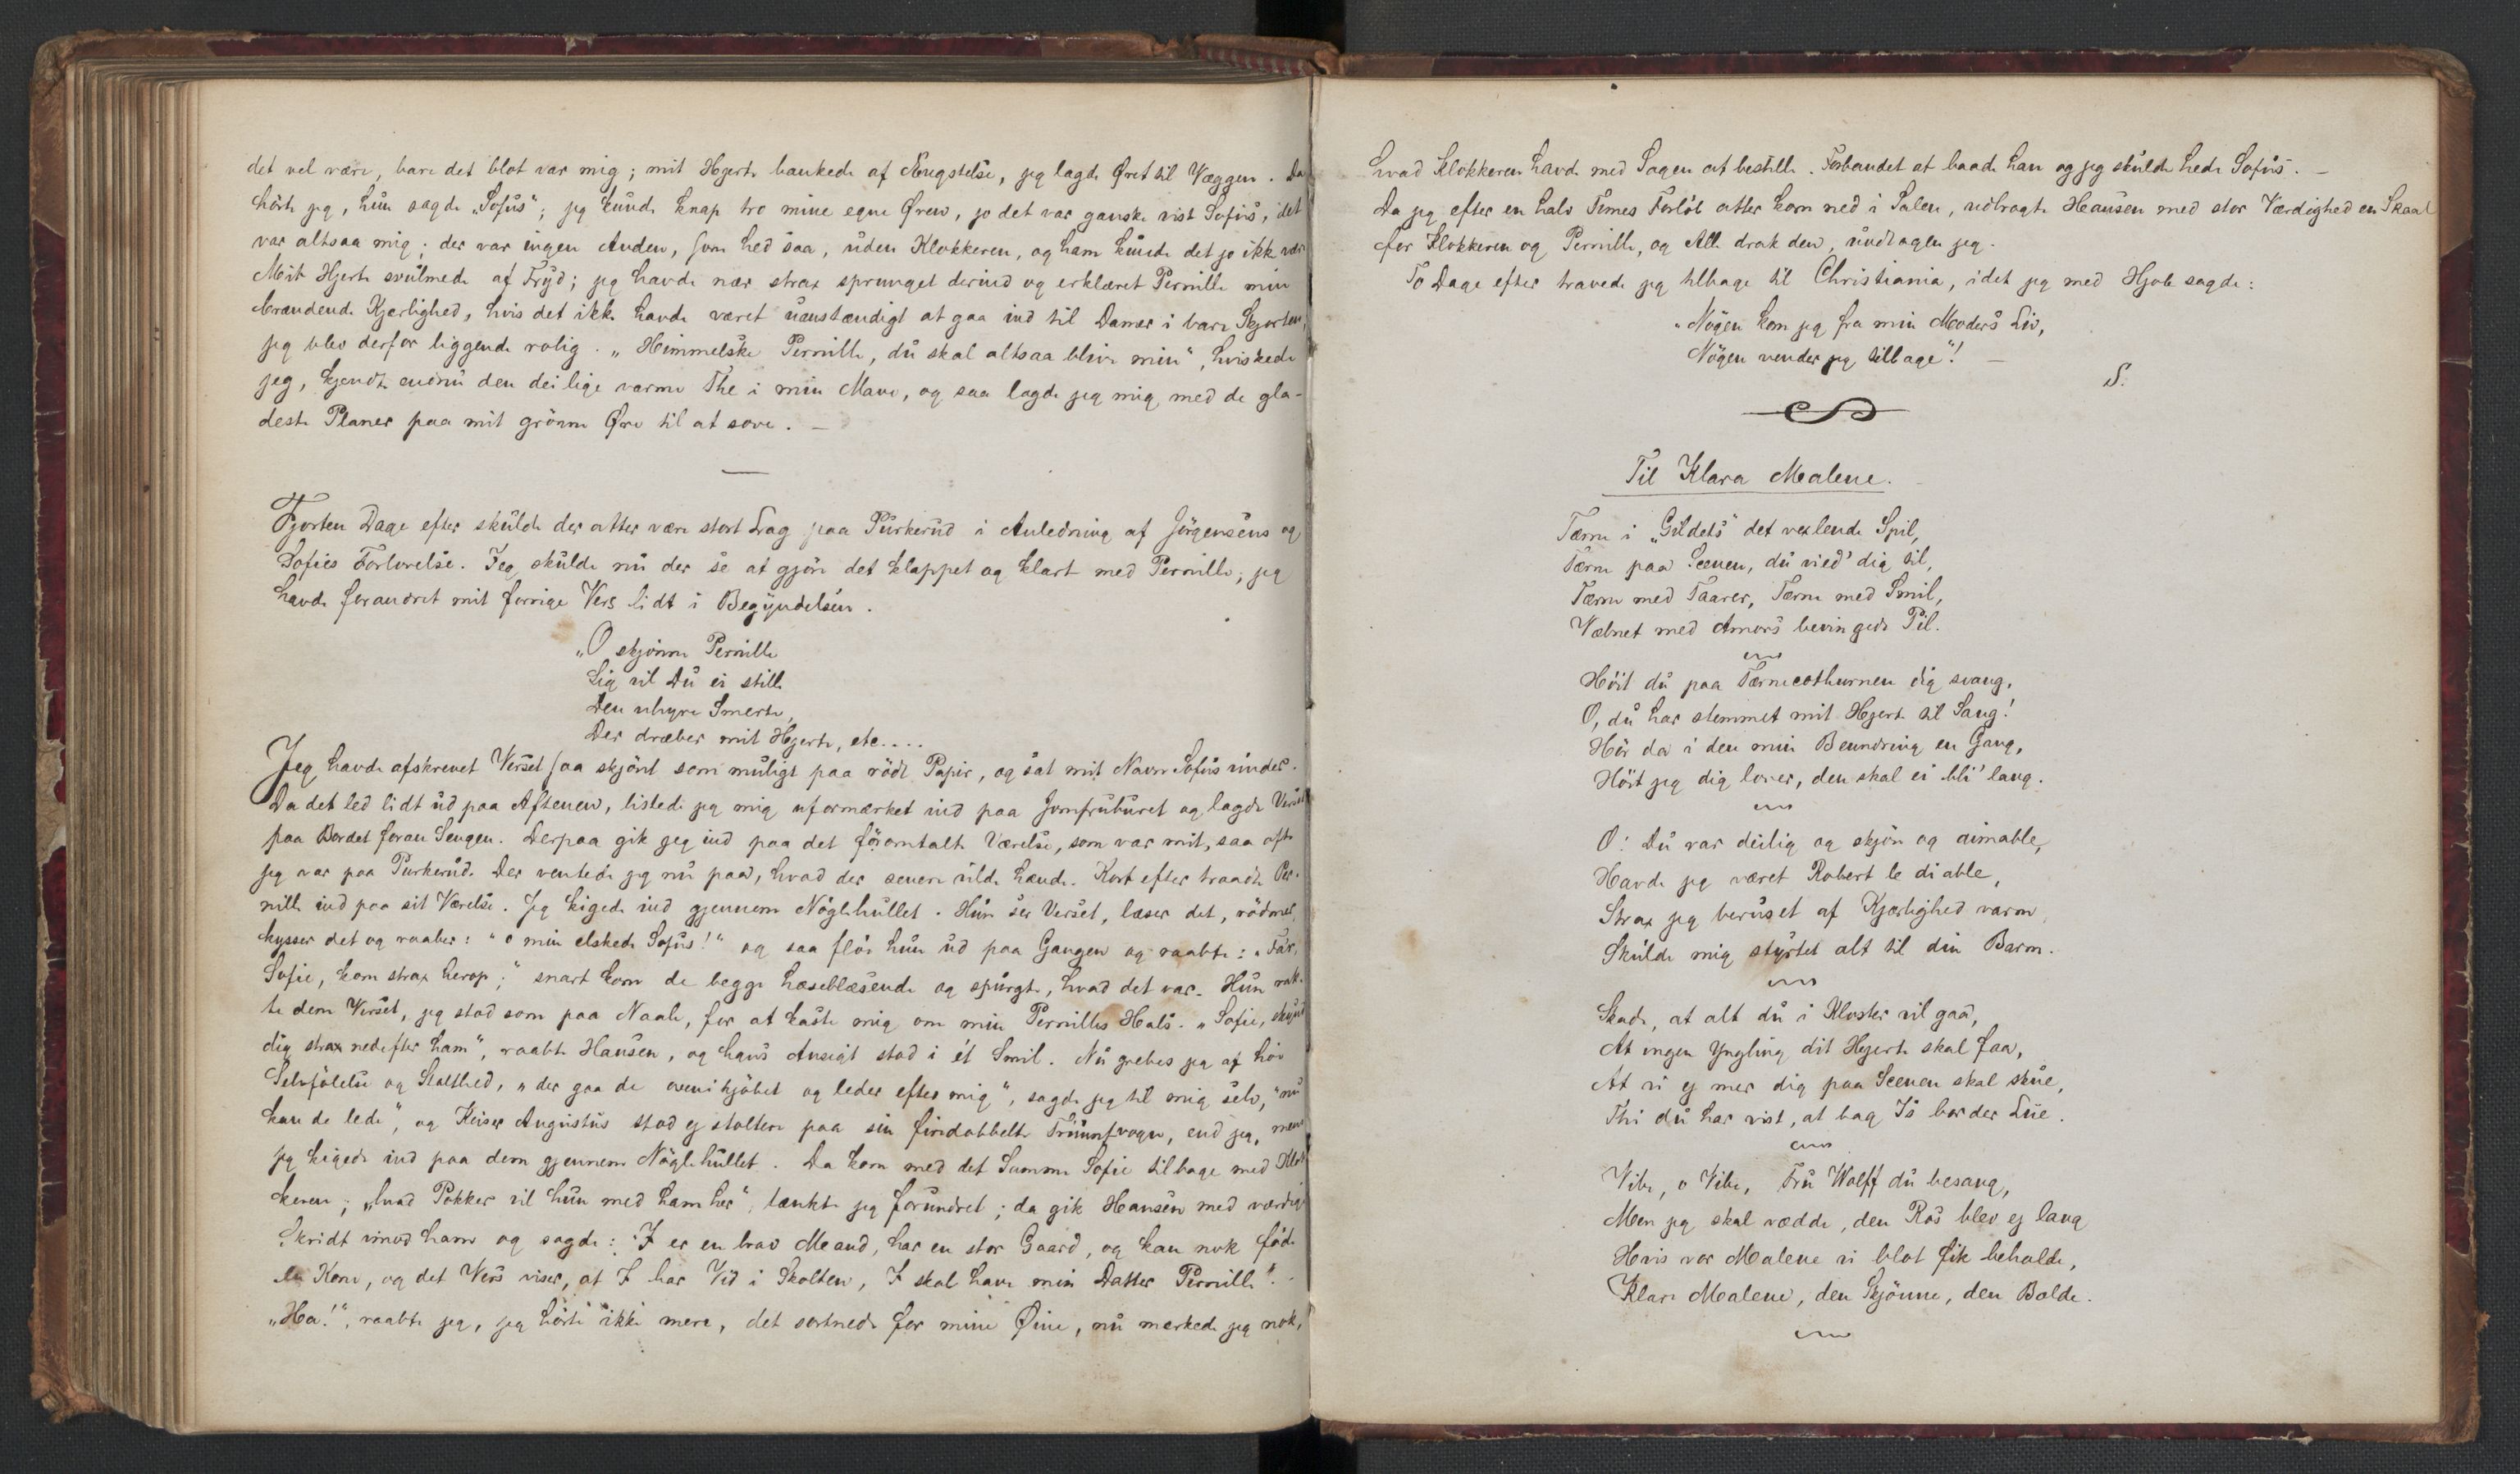 det vel være, bare det blot var mig; mit Hjerte bankede af Ængstelse, jeg lagde Øret til Væggen. Da
hörte jeg, hun sagde „Sofus“; jeg kunde knap tro mine egne Øren, jo det var ganske vist Sofus, det
var altsaa mig; der var ingen Anden, som hed saa, uden Klokkeren, og ham kunde det jo ikke være
Mit Hjerte svulmede af Fryd; jeg havde nær strax sprunget derind og erklæret Pernille min
brændende Kjærlighed, hvis det ikke havde været uanstændigt at gaa ind til Damer i bare Skjorten,
jeg blev derfor liggende rolig. „Himmelske Pernille, du skal altsaa blive min“, hviskede
jeg, kjendte endnu den deilige varme The i min Mave, og saa lagde jeg mig med de gla-
deste Planer paa mit grönne Øre til at sove. —
Fjorten Dage efter skulde der atter være stort Lag paa Purkerud i Anledning af Jörgensens og
Sofies Forlovelse. Jeg skulde nu der se at gjöre det klappet og klart med Pernille; jeg
havde forandret mit forrige Vers lidt i Begyndelsen.
„O skjönne Pernille
Sig vil Du ei stille
Den uhyre Smerte,
Der dræber mit Hjerte, etc....
Jeg havde afskrevet Verset saa skjönt som muligt paa rödt Papir, og sat mit Navn Sofus under.
Da det led lidt ud paa Aftenen, listede jeg mig uformærket ind paa Jomfruburet og lagde Verset
paa Bordet foran Sengen. Derpaa gik jeg ind paa det föromtalte Værelse, som var mit, saa ofte
jeg var paa Purkerud. Der ventede jeg nu paa, hvad der senere vilde hænde. Kort efter traadte Per-
nille ind paa sit Værelse. Jeg kigede ind gjennem Nöglehullet. Hun ser Verset, læser det, rödmer,
kysser det og raaber: „o min elskede Sofus!“ og saa flöi hun ud paa Gangen og raabte: „Far,
Sofie, kom strax herop;“ snart kom de begge hæseblæsende og spurgte, hvad det var. Hun rak-
te dem Verset, jeg stod som paa Naale, for at kaste mig om min Pernilles Hals. „Sofie, skynd
dig strax nedefter ham“, raabte Hansen, og hans Ansigt stod i ét Smil. Nu grebes jeg af höi
Selvfölelse og Stolthed, „der gaa de ovenikjöbet og leder efter mig“, sagde jeg til mig selv, „nu
kan de lede“, og Keiser Augustus stod ej stoltere paa sin firdobbelte Triumfvogn, end jeg, mens
jeg kigede ind paa dem gjennem Nöglehullet. Da kom med det Samme Sofie tilbage med Klok
keren; „hvad Pokker vil hun med ham her“, tænkte jeg forundret; da gik Hansen med værdige
Skridt imod ham og sagde: „I er en brav Mand, har en stor Gaard, og kan nok föde
en Kone, og det Vers viser, at I har Vid i Skolten, I skal have min Datter Pernille“. -
„Ha!“, raabte jeg, jeg hörte ikke mere, det sortnede for mine Øine, nu mærkede jeg nok,
hvad Klokkeren havde med Sagen at bestille. Forbandet at baade han og jeg skulde hede Sofus. —
Da jeg efter en halv Times Forløb atter kom ned i Salen, udbragte Hansen med stor Værdighed en Skaal
for Klokkeren og Pernille, og Alle drak den, undtagen jeg.
To Dage efter travede jeg tilbage til Christiania, idet jeg med Hjob sagde:
„Nögen kom jeg fra min Moders Liv,
Nögen vender jeg tilbage“! —
S.
Til Klara Malene.
Tærne i „Gildets“ det vexlende Spil,
Tærne paa Scenen, du vied' dig til,
Tærne med Taarer, Tærne med Smil,
Væbnet med Amors bevingede Pil.
Höit du paa Tærnecothurnen dig svang,
O, du har stemmet mit Hjerte til Sang!
Hör da i den min Beundring en Gang,
Höit jeg dig lover, den skal ei bli' lang.
O! Du var deilig og skjön og aimable,
Havde jeg været Robert le diable,
Strax jeg beruset af Kjærlighed varm
Skulde mig styrtet alt til din Barm.
Skade, at alt du i Kloster vil gaa,
At ingen Yngling dit Hjerte skal faa,
At vi ej mer dig paa Scenen skal skue,
Thi du har vist, at bag Is bor der Lue.
Vibe, o Vibe, Fru Wolff du besang,
Men jeg skal vædde, den Ros blev ej lang
Hvis vor Malene vi blot fik beholde,
Klare Malene, den Skjönne, den Bolde.